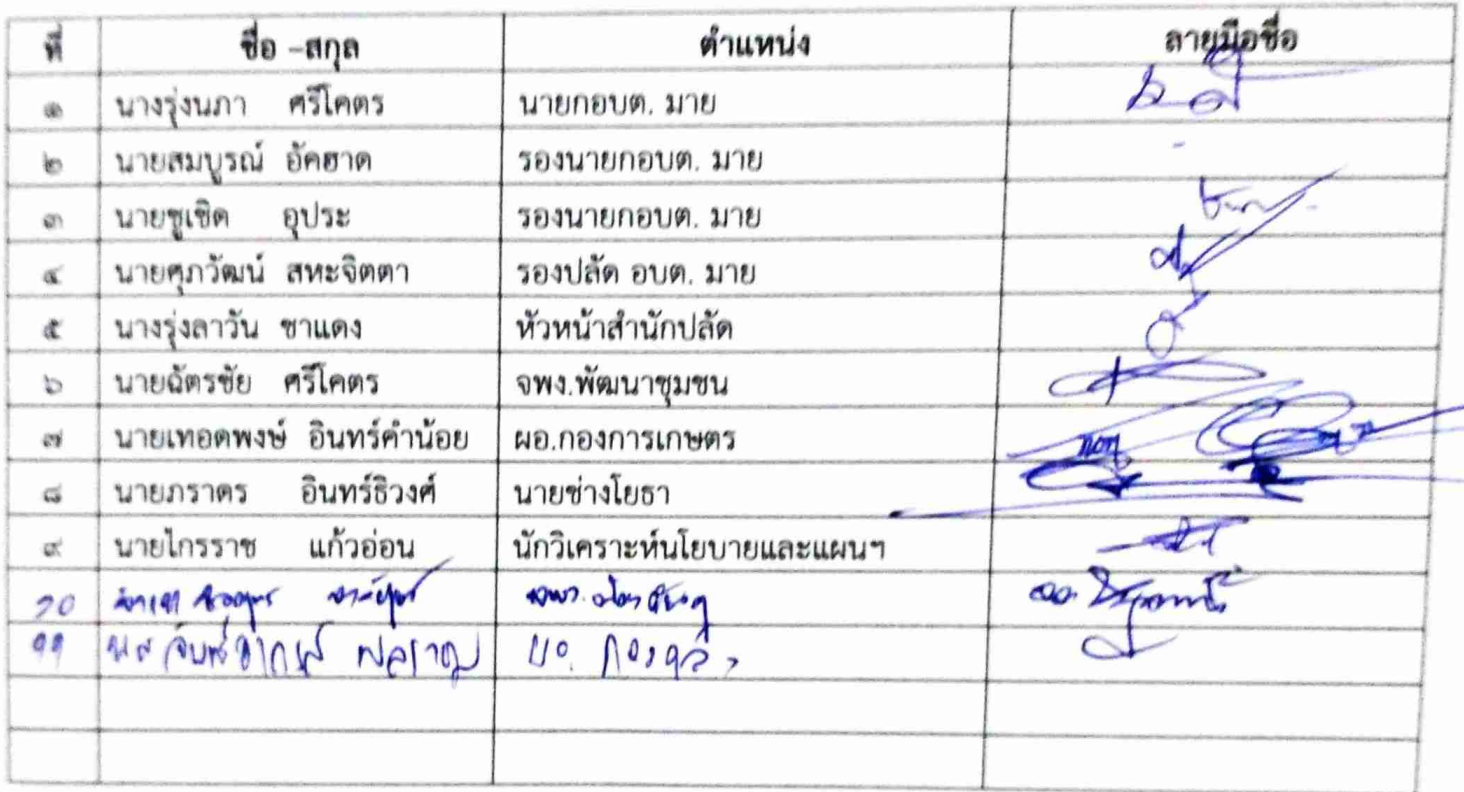 ที่ ชื่อ -สกุล ตำแหน่ง ลายมือชื่อ
๑ นางรุ่งนภา ศรีโคตร นายกอบต. มาย
๒ นายสมบูรณ์ อัคฮาด รองนายกอบต. มาย -
๓ นายชูเชิด อุประ รองนายกอบต. มาย
๔ นายศุภวัฒน์ สหะจิตตา รองปลัด อบต. มาย
๕ นางรุ่งลาวัน ชาแดง หัวหน้าสำนักปลัด
๖ นายฉัตรชัย ศรีโคตร จพง.พัฒนาชุมชน
๗ นายเทอดพงษ์ อินทร์คำน้อย ผอ.กองการเกษตร
๘ นายภราดร อินทร์ธิวงศ์ นายช่างโยธา
๙ นายไกรราช แก้วอ่อน นักวิเคราะห์นโยบายและแผนฯ
๑๐
๑๑ ผอ. กองคลัง